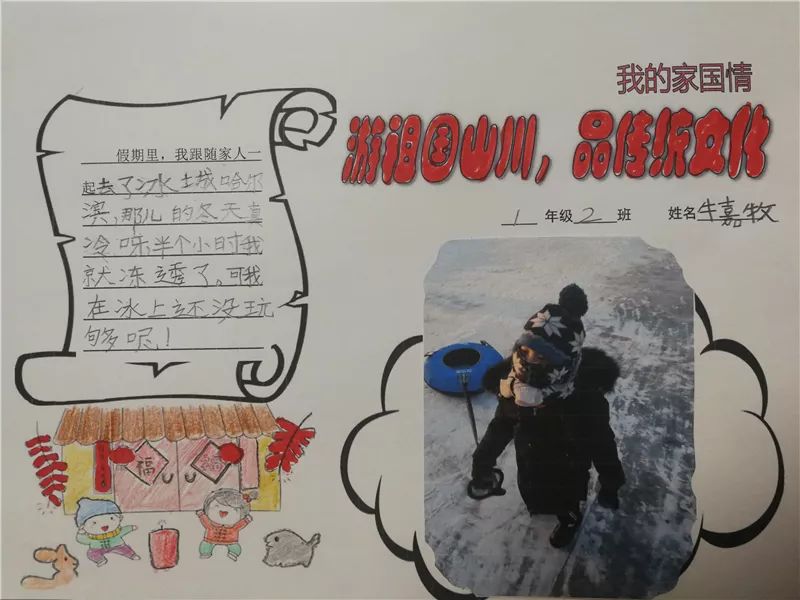 我的家国情
游祖国山川，品传统文化
1 年级 2 班 姓名 牛嘉牧
假期里，我跟随家人一
起去了冰城哈尔
滨，那儿的冬天真
冷呀半个小时我
就冻透了。可我
在冰上还没玩
够呢！
福
福